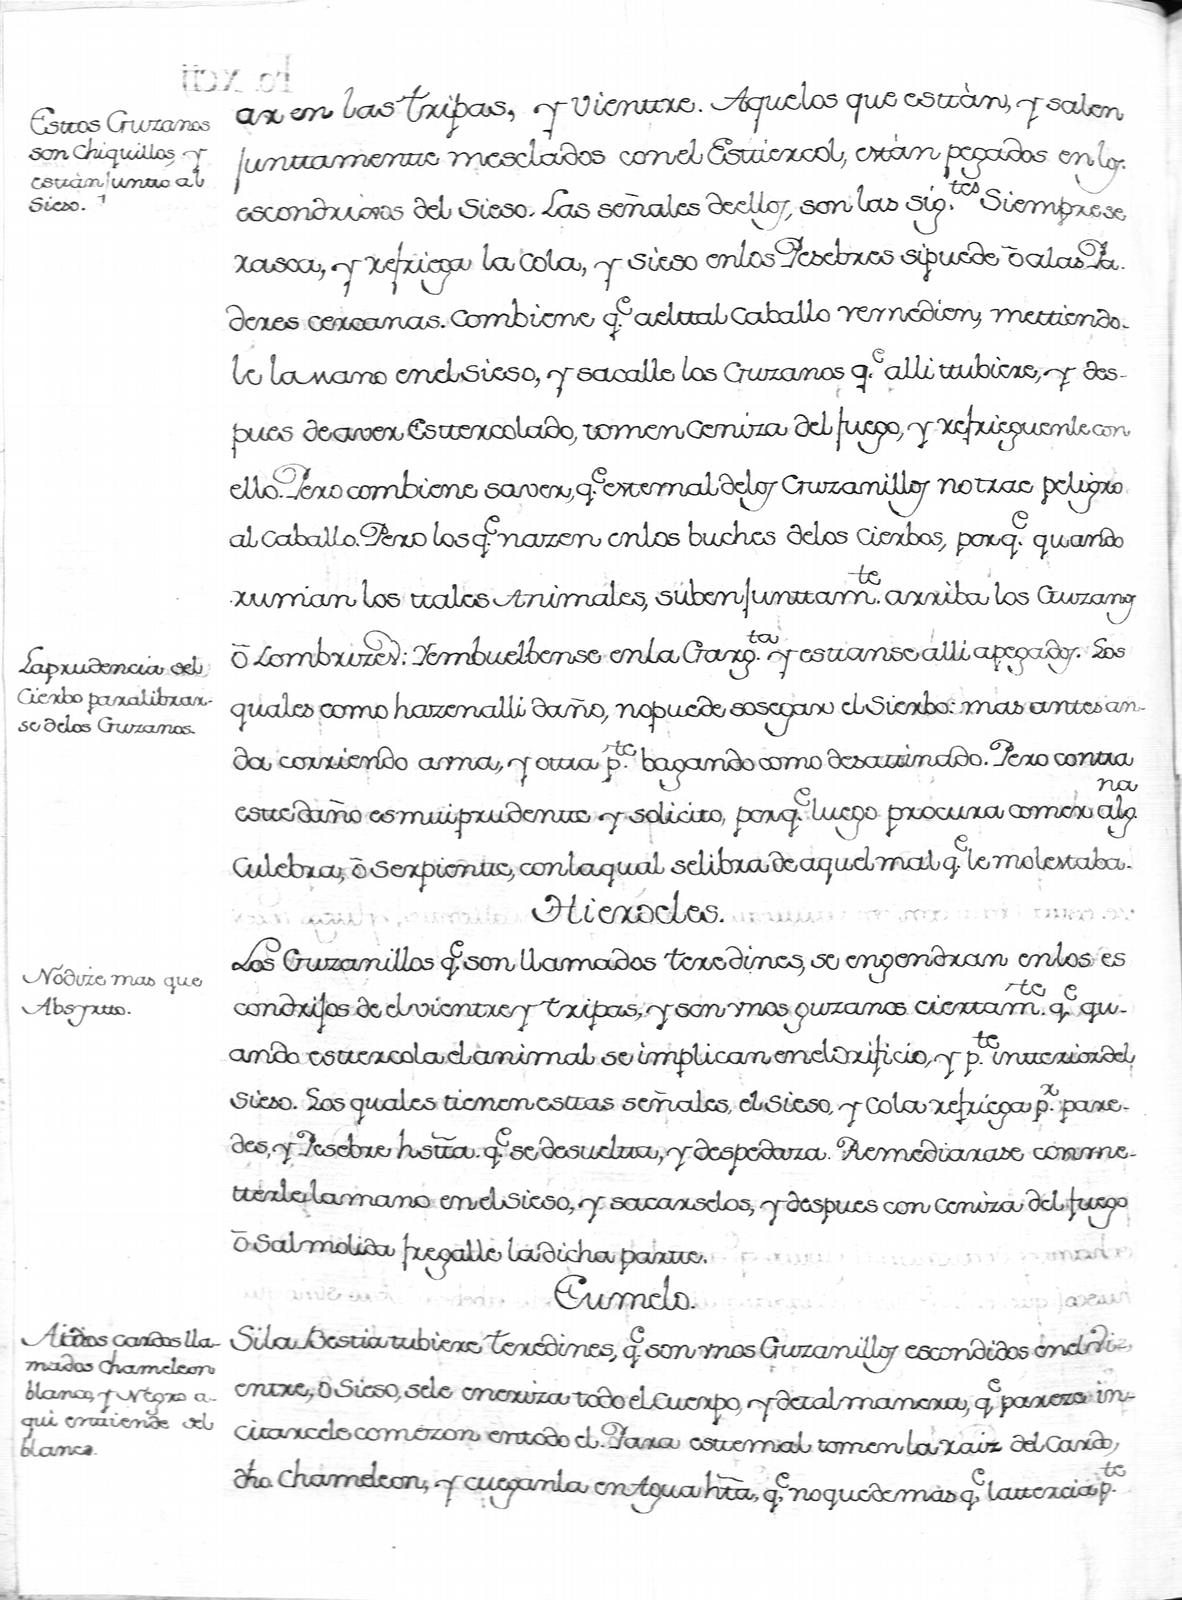 Estos Guzanos
son chiquillos, y
estàn junto al
Sieso.
ar en las tripas, y vientre. Aquelos que estàn, y salen
juntamente mesclados con el Estiercol, están pegados en los
escondrijos del Sieso. Las señales dellos, son las sig.tes Siempre se
rasca, y refriega la Cola, y sieso en los Pesebres si puede ō a las Pa-
deres cercanas. Combiene q.e a el tal Caballo remedien, mettiendo-
le la mano en el Sieso, y sacalle los Guzanos q.e alli tubiere, y des-
pues de aver Estercolado, tomen Ceniza del fuego, y refrieguenle con
ello. Pero combiene saver, q.e este mal de los Guzanillos no trae peligro
al Caballo. Pero los q.e nazen en los buches de los Cierbos, porq.e quando
rumian los tales Animales, suben junttam.te arriba los Guzanos
ō Lombrizes: Y embuelbense en la Garg.ta y estanse alli apegados. Los
La prudencia del
Cierbo para librar-
se de los Guzanos.
quales como hazen alli daño, no puede sosegar el Sierbo: mas antes an-
da corriendo a una, y otra p.te bagando como desattinado. Pero contra
este daño es mui prudente y solicito, porq.e luego procura comer alg.na
Culebra, ō Serpiente, con la qual se libra de aquel mal q.e le molestaba.
Hierocles.
Los Guzanillos q.e son llamados teredines, se engendran en los es
Nó dize mas que
Absyrto.
condrijos de el vientre y tripas, y son unos guzanos ciertam.te q.e qu-
ando estercola el animal se implican en el orificio, y p.te interior del
Sieso. Los quales tienen estas señales, el Sieso, y Cola refriega p.r pare-
des, y Pesebre hstta. q.e se desuelta, y despedaza. Remediarase con me-
tterle la mano en el Sieso, y sacarselos, y despues con Ceniza del fuego
ō Sal molida fregalle la dicha parte.
Eumelo.
Si la Bestia tubiere teredines, q.e son unos Guzanillos escondidos en el Vi-
A dos cardos lla-
mados Chameleon
blanco, y Negro a-
qui entiende del
blanco.
entre, o Sieso, sele eneriza todo el Cuerpo, y de tal manera, q.e pareze in-
citarcele comezon en todo el. Para este mal tomen la raiz del Cardo,
dho. Chameleon, y cueganla en Agua htā, q.e no quede màs q.e la tercia p.te